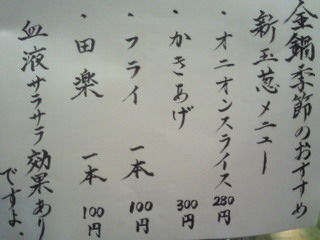 金鍋季節のおすすめ
新玉葱メニュー
・オニオンスライス 280円
・かきあげ 300円
・フライ 一本 100円
・田楽 一本 100円
血液サラサラ効果あり
ですよ。